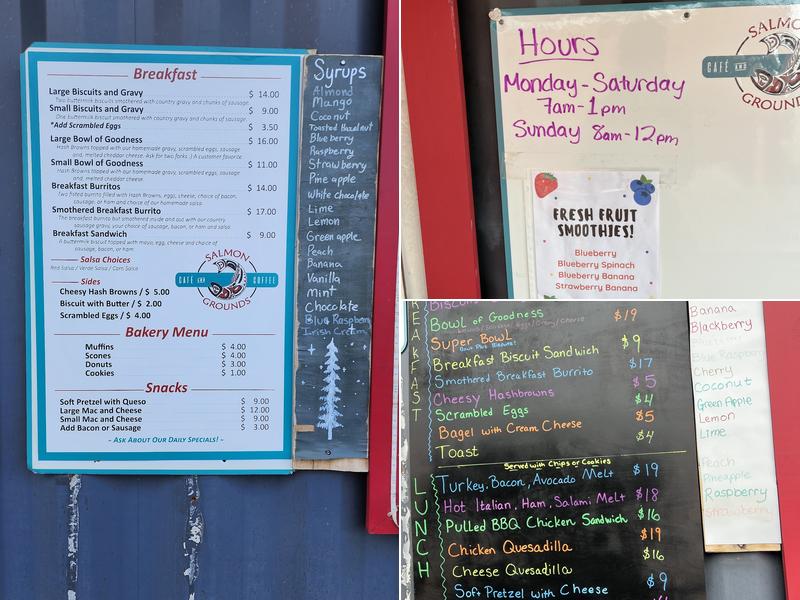 Breakfast
Large Biscuits and Gravy $ 14.00
Two buttermilk biscuits smothered with country gravy and chunks of sausage.
Small Biscuits and Gravy $ 9.00
One buttermilk biscuit smothered with country gravy and chunks of sausage.
*Add Scrambled Eggs $ 3.50
Large Bowl of Goodness $ 16.00
Hash Browns topped with our homemade gravy, scrambled eggs, sausage
and, melted cheddar cheese. Ask for two forks :) A customer favorite.
Small Bowl of Goodness $ 11.00
Hash Browns topped with our homemade gravy, scrambled eggs, sausage
and, melted cheddar cheese.
Breakfast Burritos $ 14.00
Two fisted burrito filled with Hash Browns, eggs, cheese, choice of bacon,
sausage, or ham and choice of our homemade salsa.
Smothered Breakfast Burrito $ 17.00
The breakfast burrito but smothered inside and out with our country
sausage gravy, your choice of sausage, bacon, or ham and salsa.
Breakfast Sandwich $ 9.00
A buttermilk biscuit topped with mayo, egg, cheese and choice of
sausage, bacon, or ham.
Salsa Choices
Red Salsa / Verde Salsa / Corn Salsa
Sides
Cheesy Hash Browns / $ 5.00
Biscuit with Butter / $ 2.00
Scrambled Eggs / $ 4.00
SALMON
CAFÉ AND COFFEE
GROUNDS
Bakery Menu
Muffins $ 4.00
Scones $ 4.00
Donuts $ 3.00
Cookies $ 1.00
Snacks
Soft Pretzel with Queso $ 9.00
Large Mac and Cheese $ 12.00
Small Mac and Cheese $ 9.00
Add Bacon or Sausage $ 3.00
~ Ask About Our Daily Specials! ~
Syrups
Almond
Mango
Coconut
Toasted Hazelnut
Blueberry
Raspberry
Strawberry
Pine apple
White chocolate
Lime
Lemon
Green apple
Peach
Banana
Vanilla
Mint
Chocolate
Blue Raspberry
Irish Cream
Hours
Monday-Saturday
7am-1pm
Sunday 8am-12pm
SALMO
CAFÉ AND
GROUNDS
FRESH FRUIT
SMOOTHIES!
Blueberry
Blueberry Spinach
Blueberry Banana
Strawberry Banana
REAKFAST
Biscui
Bowl of Goodness $19
Super Bowl
Breakfast Biscuit Sandwich $9
Smothered Breakfast Burrito $17
Cheesy Hashbrowns $5
Scrambled Eggs $4
Bagel with Cream Cheese $5
Toast $4
Served with Chips or Cookies
LUNCH
Turkey, Bacon, Avocado Melt $19
Hot Italian, Ham, Salami Melt $18
Pulled BBQ Chicken Sandwich $16
Chicken Quesadilla $19
Cheese Quesadilla $16
Soft Pretzel with Cheese $9
Banana
Blackberry
Blueberry
Blue Raspberry
Cherry
Coconut
Green Apple
Lemon
Lime
Peach
Pineapple
Raspberry
Strawberry